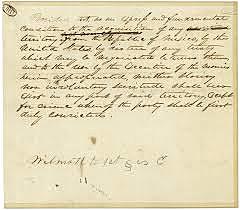 Provided that as an express and fundamental
condition to the acquisition of any
territory from the Republic of Mexico, by the
United States, by virtue of any treaty
which may be negotiated between them,
and to the use by the Executive of the moneys
herein appropriated, neither slavery
nor involuntary servitude shall ever
exist in any part of said territory, except
for crime, whereof the party shall be first
duly convicted.
Wilmot